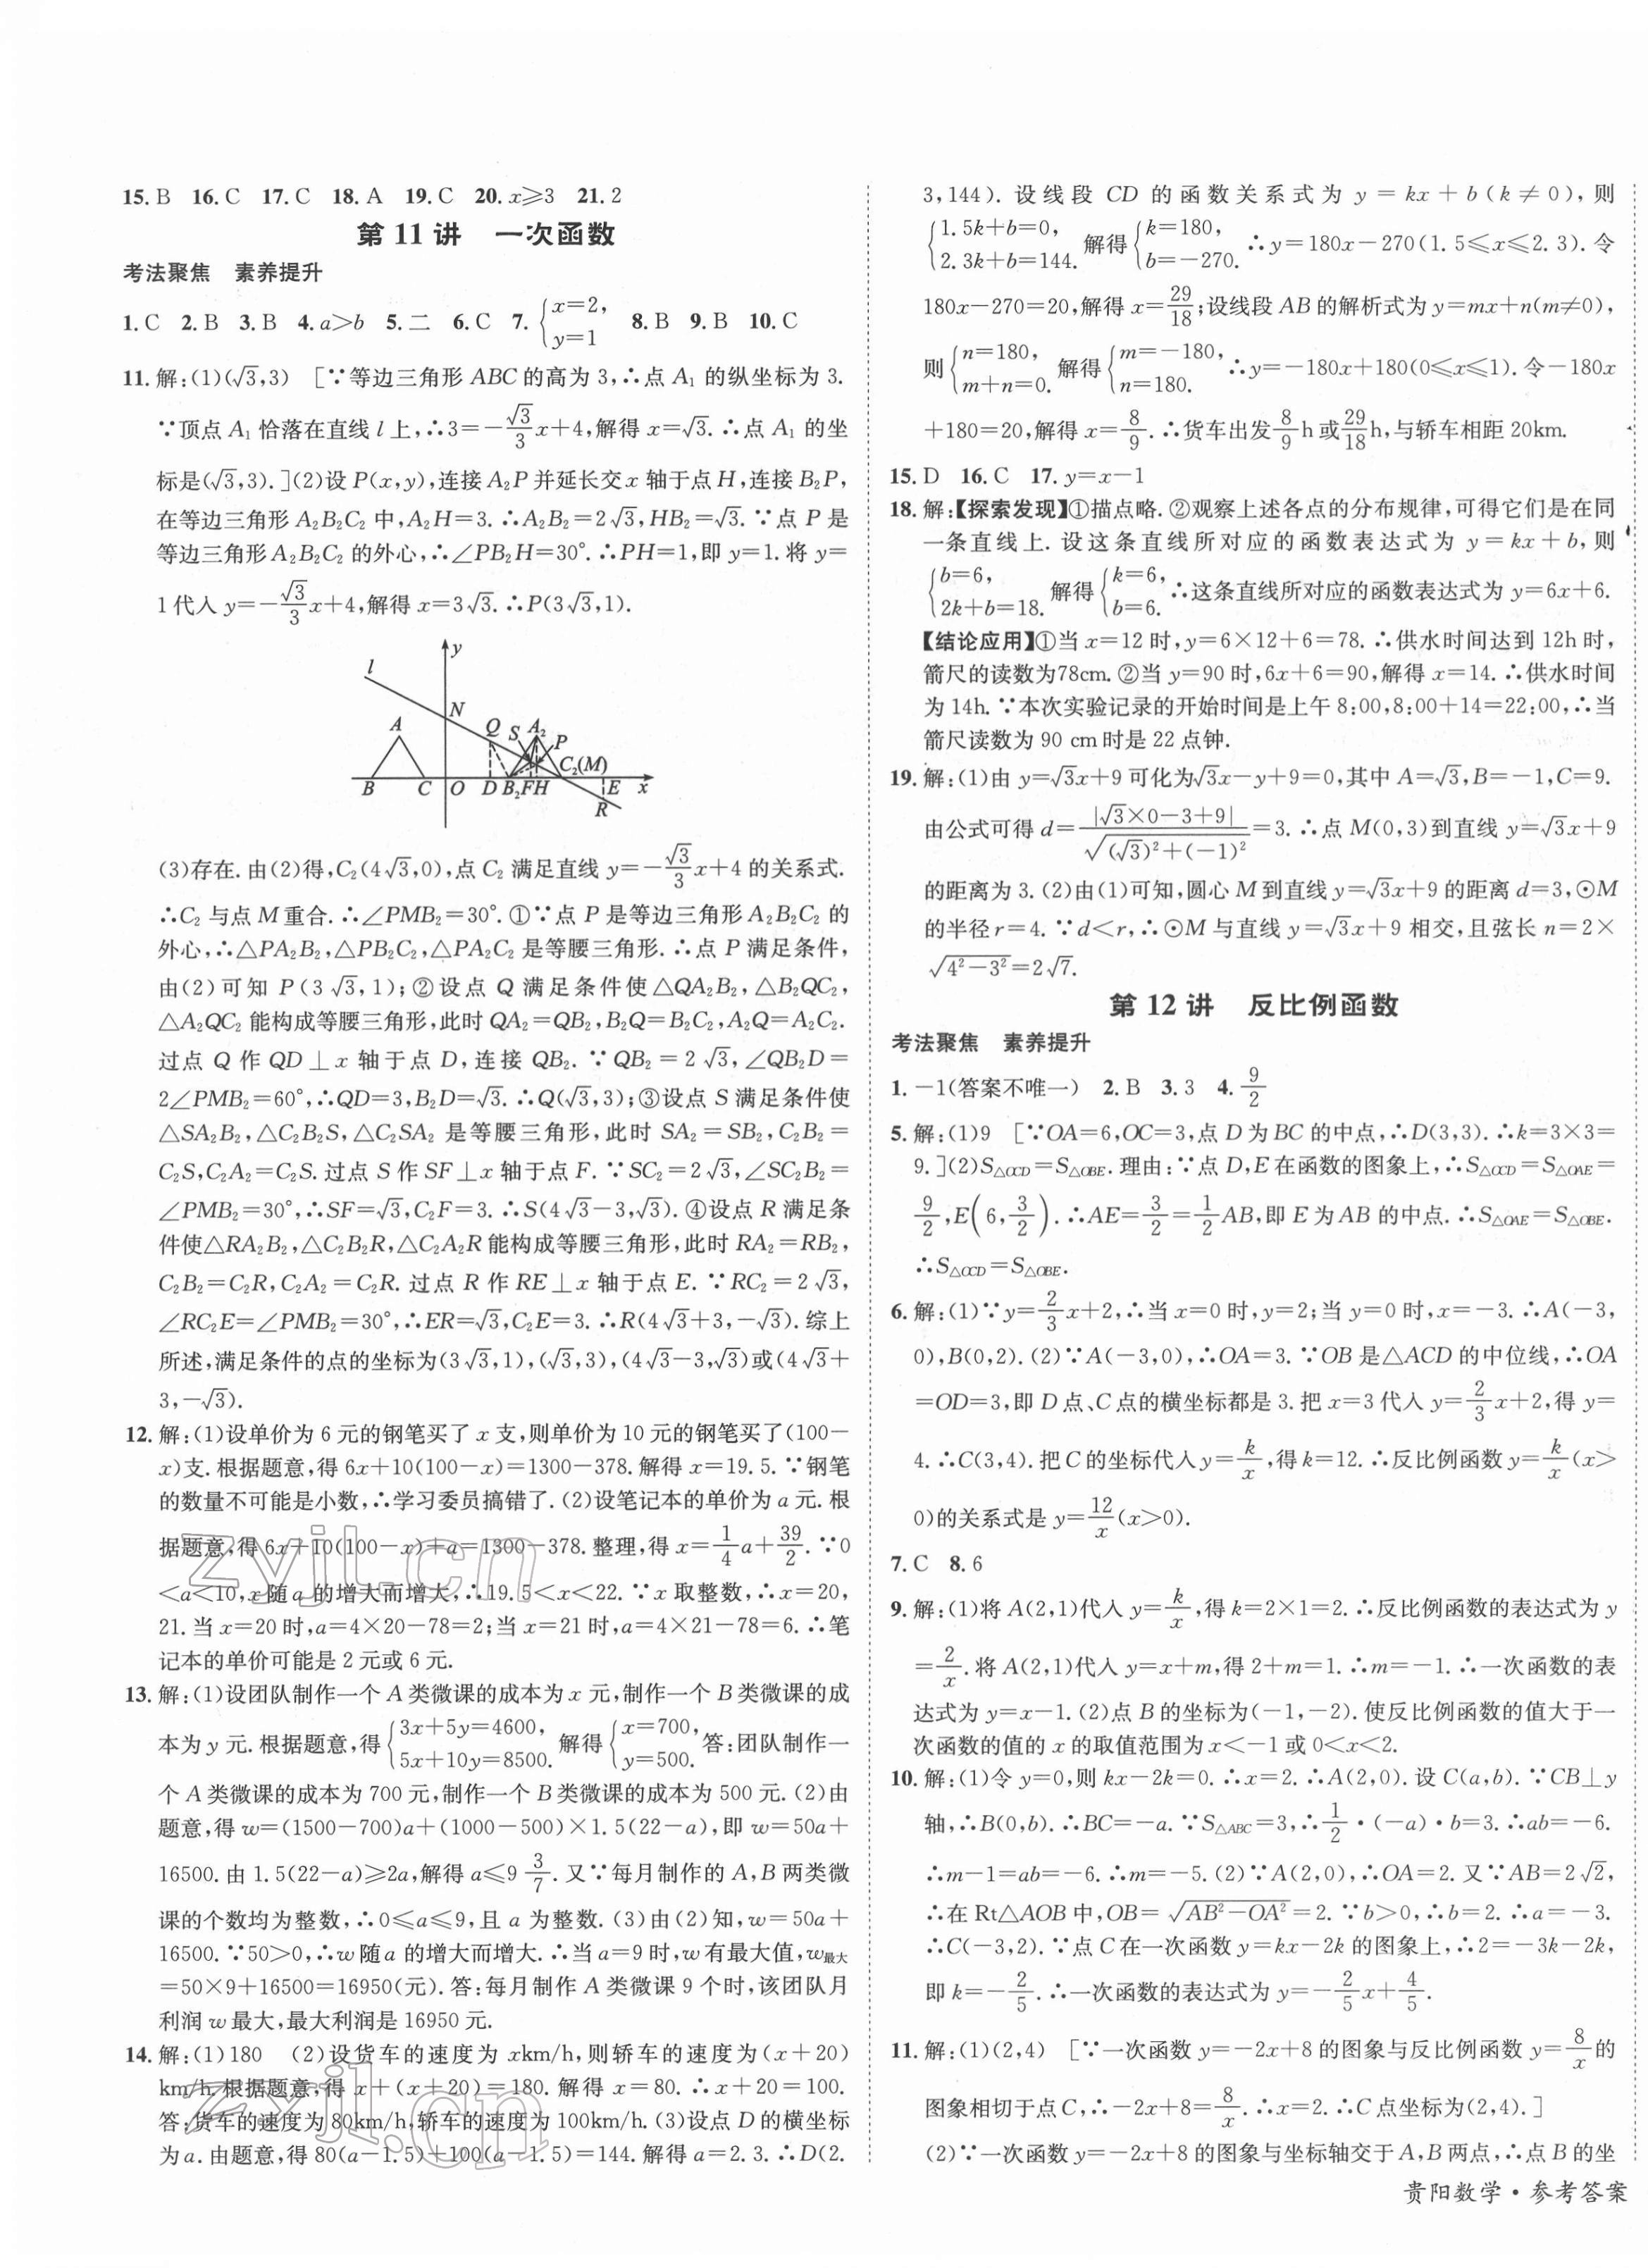 15. B  16. C  17. C  18. A  19. C  20. x≥3  21. 2
第 11 讲　一次函数
考法聚焦　素养提升
1. C  2. B  3. B  4. a>b  5. 二  6. C  7. {x=2, y=1  8. B  9. B  10. C
11. 解:(1)(√3,3)　[∵等边三角形 ABC 的高为 3,∴点 A₁ 的纵坐标为 3.
∵顶点 A₁ 恰落在直线 l 上,∴3=-√3/3x+4,解得 x=√3.∴点 A₁ 的坐
标是(√3,3).](2)设 P(x,y),连接 A₂P 并延长交 x 轴于点 H,连接 B₂P,
在等边三角形 A₂B₂C₂ 中,A₂H=3.∴A₂B₂=2√3,HB₂=√3.∵点 P 是
等边三角形 A₂B₂C₂ 的外心,∴∠PB₂H=30°.∴PH=1,即 y=1.将 y=
1代入 y=-√3/3x+4,解得 x=3√3.∴P(3√3,1).
y
l
N
A Q S A₂ P
C₂(M)
B C O D B₂ F H E x
R
(3)存在.由(2)得,C₂(4√3,0),点 C₂ 满足直线 y=-√3/3x+4 的关系式.
∴C₂ 与点 M 重合.∴∠PMB₂=30°.①∵点 P 是等边三角形 A₂B₂C₂ 的
外心,∴△PA₂B₂,△PB₂C₂,△PA₂C₂ 是等腰三角形.∴点 P 满足条件,
由(2)可知 P(3√3,1);②设点 Q 满足条件使△QA₂B₂,△B₂QC₂,
△A₂QC₂ 能构成等腰三角形,此时 QA₂=QB₂,B₂Q=B₂C₂,A₂Q=A₂C₂.
过点 Q 作 QD⊥x 轴于点 D,连接 QB₂.∵QB₂=2√3,∠QB₂D=
2∠PMB₂=60°,∴QD=3,B₂D=√3.∴Q(√3,3);③设点 S 满足条件使
△SA₂B₂,△C₂B₂S,△C₂SA₂ 是等腰三角形,此时 SA₂=SB₂,C₂B₂=
C₂S,C₂A₂=C₂S.过点 S 作 SF⊥x 轴于点 F.∵SC₂=2√3,∠SC₂B₂=
∠PMB₂=30°,∴SF=√3,C₂F=3.∴S(4√3-3,√3).④设点 R 满足条
件使△RA₂B₂,△C₂B₂R,△C₂A₂R 能构成等腰三角形,此时 RA₂=RB₂,
C₂B₂=C₂R,C₂A₂=C₂R.过点 R 作 RE⊥x 轴于点 E.∵RC₂=2√3,
∠RC₂E=∠PMB₂=30°,∴ER=√3,C₂E=3.∴R(4√3+3,-√3).综上
所述,满足条件的点的坐标为(3√3,1),(√3,3),(4√3-3,√3)或(4√3+
3,-√3).
12. 解:(1)设单价为 6 元的钢笔买了 x 支,则单价为 10 元的钢笔买了(100-
x)支.根据题意,得 6x+10(100-x)=1300-378.解得 x=19.5.∵钢笔
的数量不可能是小数,∴学习委员搞错了.(2)设笔记本的单价为 a 元.根
据题意,得 6x+10(100-x)+a=1300-378.整理,得 x=1/4a+39/2.∵0
<a<10,x 随 a 的增大而增大,∴19.5<x<22.∵x 取整数,∴x=20,
21.当 x=20 时,a=4×20-78=2;当 x=21 时,a=4×21-78=6.∴笔
记本的单价可能是 2 元或 6 元.
13. 解:(1)设团队制作一个 A 类微课的成本为 x 元,制作一个 B 类微课的成
本为 y 元.根据题意,得{3x+5y=4600, 5x+10y=8500. 解得{x=700, y=500. 答:团队制作一
个 A 类微课的成本为 700 元,制作一个 B 类微课的成本为 500 元.(2)由
题意,得 w=(1500-700)a+(1000-500)×1.5(22-a),即 w=50a+
16500.由 1.5(22-a)≥2a,解得 a≤9 3/7.又∵每月制作的 A,B 两类微
课的个数均为整数,∴0≤a≤9,且 a 为整数.(3)由(2)知,w=50a+
16500.∵50>0,∴w 随 a 的增大而增大.∴当 a=9 时,w 有最大值,w最大
=50×9+16500=16950(元).答:每月制作 A 类微课 9 个时,该团队月
利润 w 最大,最大利润是 16950 元.
14. 解:(1)180　(2)设货车的速度为 xkm/h,则轿车的速度为(x+20)
km/h.根据题意,得 x+(x+20)=180.解得 x=80.∴x+20=100.
答:货车的速度为 80km/h,轿车的速度为 100km/h.(3)设点 D 的横坐标
为 a.由题意,得 80(a-1.5)+100(a-1.5)=144.解得 a=2.3.∴D(2.
3,144).设线段 CD 的函数关系式为 y=kx+b(k≠0),则
{1.5k+b=0, 2.3k+b=144. 解得{k=180, b=-270. ∴y=180x-270(1.5≤x≤2.3).令
180x-270=20,解得 x=29/18;设线段 AB 的解析式为 y=mx+n(m≠0),
则{n=180, m+n=0. 解得{m=-180, n=180. ∴y=-180x+180(0≤x≤1).令-180x
+180=20,解得 x=8/9.∴货车出发8/9h 或29/18h,与轿车相距 20km.
15. D  16. C  17. y=x-1
18. 解:【探索发现】①描点略.②观察上述各点的分布规律,可得它们是在同
一条直线上.设这条直线所对应的函数表达式为 y=kx+b,则
{b=6, 2k+b=18. 解得{k=6, b=6. ∴这条直线所对应的函数表达式为 y=6x+6.
【结论应用】①当 x=12 时,y=6×12+6=78.∴供水时间达到 12h 时,
箭尺的读数为78cm.②当 y=90 时,6x+6=90,解得 x=14.∴供水时间
为 14h.∵本次实验记录的开始时间是上午 8:00,8:00+14=22:00,∴当
箭尺读数为 90 cm时是 22 点钟.
19. 解:(1)由 y=√3x+9 可化为√3x-y+9=0,其中 A=√3,B=-1,C=9.
由公式可得 d=|√3×0-3+9|/√((√3)²+(-1)²)=3.∴点 M(0,3)到直线 y=√3x+9
的距离为 3.(2)由(1)可知,圆心 M 到直线 y=√3x+9 的距离 d=3,⊙M
的半径 r=4.∵d<r,∴⊙M 与直线 y=√3x+9 相交,且弦长 n=2×
√(4²-3²)=2√7.
第 12 讲　反比例函数
考法聚焦　素养提升
1. -1(答案不唯一)  2. B  3. 3  4. 9/2
5. 解:(1)9　[∵OA=6,OC=3,点 D 为 BC 的中点,∴D(3,3).∴k=3×3=
9.](2)S△OCD=S△OBE.理由:∵点 D,E 在函数的图象上,∴S△OCD=S△OAE=
9/2,E(6,3/2).∴AE=3/2=1/2AB,即 E 为 AB 的中点.∴S△OAE=S△OBE.
∴S△OCD=S△OBE.
6. 解:(1)∵y=2/3x+2,∴当 x=0 时,y=2;当 y=0 时,x=-3.∴A(-3,
0),B(0,2).(2)∵A(-3,0),∴OA=3.∵OB 是△ACD 的中位线,∴OA
=OD=3,即 D 点、C 点的横坐标都是 3.把 x=3 代入 y=2/3x+2,得 y=
4.∴C(3,4).把 C 的坐标代入 y=k/x,得 k=12.∴反比例函数 y=k/x(x>
0)的关系式是 y=12/x(x>0).
7. C  8. 6
9. 解:(1)将 A(2,1)代入 y=k/x,得 k=2×1=2.∴反比例函数的表达式为 y
=2/x.将 A(2,1)代入 y=x+m,得 2+m=1.∴m=-1.∴一次函数的表
达式为 y=x-1.(2)点 B 的坐标为(-1,-2).使反比例函数的值大于一
次函数的值的 x 的取值范围为 x<-1 或 0<x<2.
10. 解:(1)令 y=0,则 kx-2k=0.∴x=2.∴A(2,0).设 C(a,b).∵CB⊥y
轴,∴B(0,b).∴BC=-a.∵S△ABC=3,∴1/2·(-a)·b=3.∴ab=-6.
∴m-1=ab=-6.∴m=-5.(2)∵A(2,0),∴OA=2.又∵AB=2√2,
∴在 Rt△AOB 中,OB=√(AB²-OA²)=2.∵b>0,∴b=2.∴a=-3.
∴C(-3,2).∵点 C 在一次函数 y=kx-2k 的图象上,∴2=-3k-2k,
即 k=-2/5.∴一次函数的表达式为 y=-2/5x+4/5.
11. 解:(1)(2,4)　[∵一次函数 y=-2x+8 的图象与反比例函数 y=8/x的
图象相切于点 C,∴-2x+8=8/x.∴x=2.∴C 点坐标为(2,4).]
(2)∵一次函数 y=-2x+8 的图象与坐标轴交于 A,B 两点,∴点 B 的坐
贵阳数学·参考答案
zyjl.cn
zyjl.cn